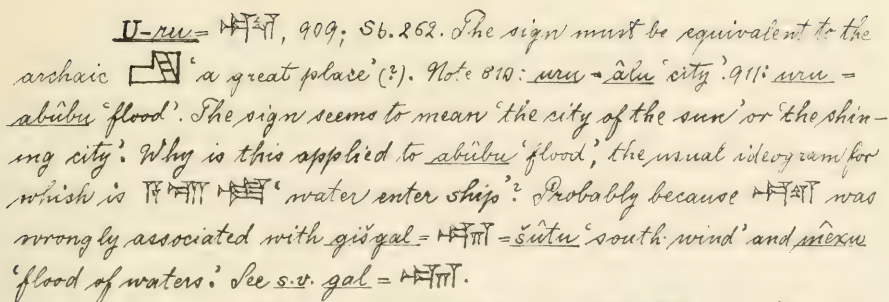 U-ru = , 909; Sb. 262. The sign must be equivalent to the
archaic 'a great place' (?). Note 810: uru = âlu 'city'. 911: uru =
abûbu 'flood'. The sign seems to mean 'the city of the sun' or 'the shin-
ing city'. Why is this applied to abûbu 'flood', the usual ideogram for
which is 'water enter ship'? Probably because was
wrongly associated with gišgal = = šûtu 'south-wind' and mêxu
'flood of waters'. See s.v. gal = .